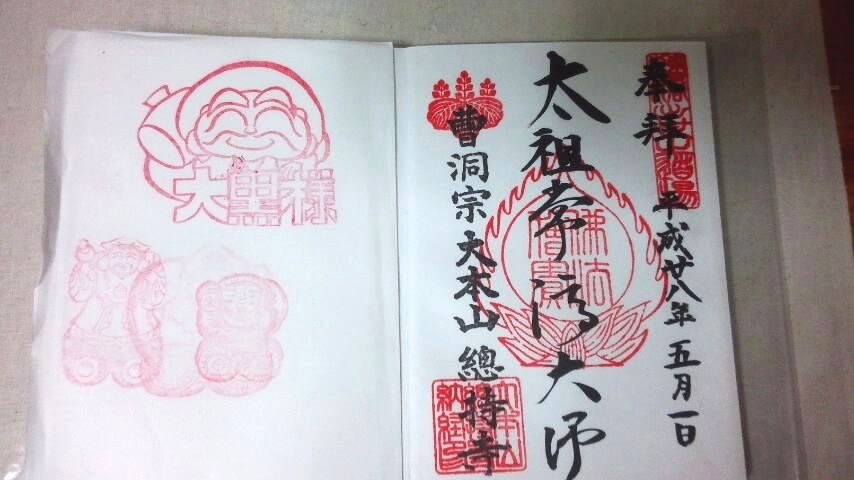 奉拜
平成廿八年五月一日
太祖常済大师
曹洞宗大本山總持寺
佛法僧寶
大黒様